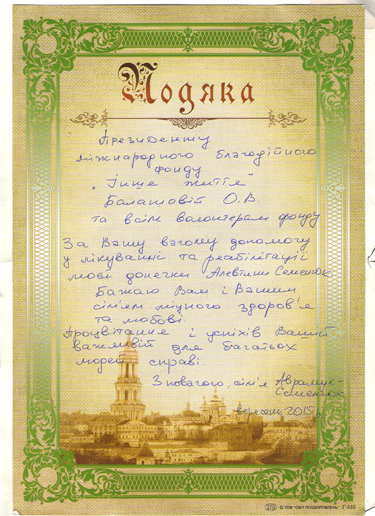 Подяка
Президенту
міжнародного благодійного
фонду
"Інше життя"
Балашовій О.В.
та всім волонтерам фонду
За Вашу вагому допомогу
у лікуванні та реабілітації
моєї донечки Алевтини Семенюк.
Бажаю Вам і Вашим
сім'ям міцного здоров'я
та любові.
Процвітання і успіхів Вашій
важливій для багатьох
людей справі
З повагою, сім'я Аврамук-
Семенюк
вересень 2015
© ТОВ "СВІТ ПОЗДОРОВЛЕНЬ"